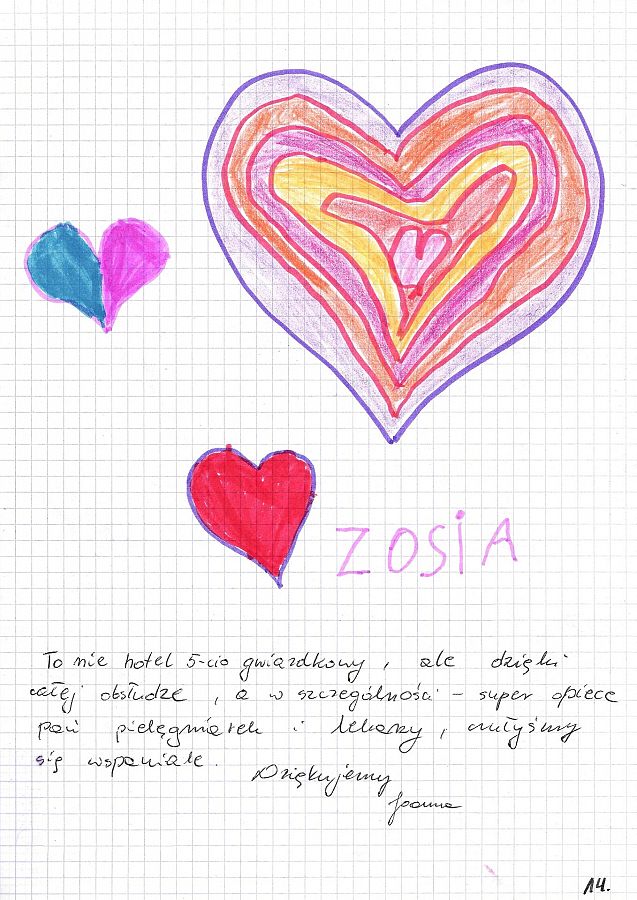 ZOSiA
To nie hotel 5-cio gwiazdkowy, ale dzięki
całej obsłudze, a w szczególności - super opiece
pań pielęgniarek i lekarzy, czułyśmy
się wspaniale.
Dziękujemy
Joanna
14.